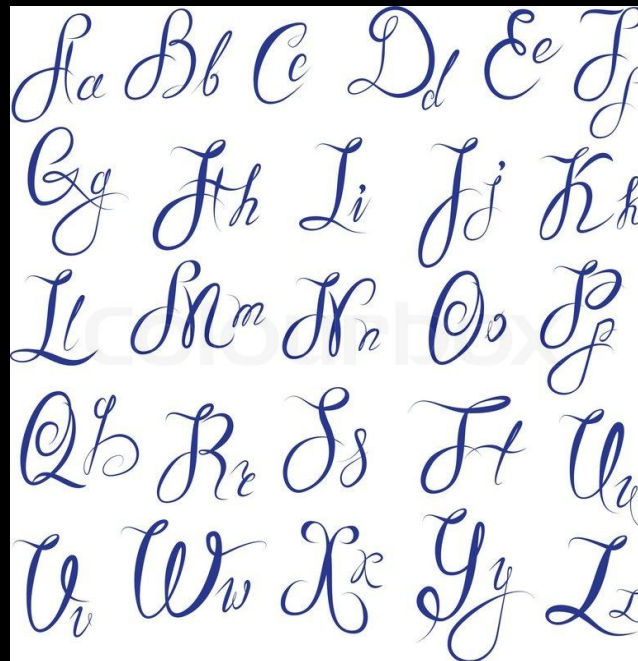 Aa Bb Cc Dd Ee Ff
Gg Hh Ii Jj Kk
Ll Mm Nn Oo Pp
Qq Rr Ss Tt Uu
Vv Ww Xx Yy Zz
colourbox